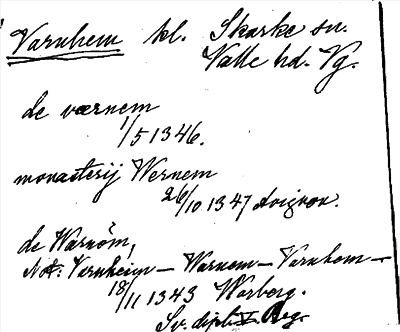 Varnhem kl. Skarke sn.
Valle hd. Vg.
de værnem
1/5 1346.
monasterij Wernem
26/10 1347 Avignon.
de Warnöm,
Not: Varnheim – Warnem – Varnhem –
18/11 1343 Warberg.
Sv. dipl. V. Reg.